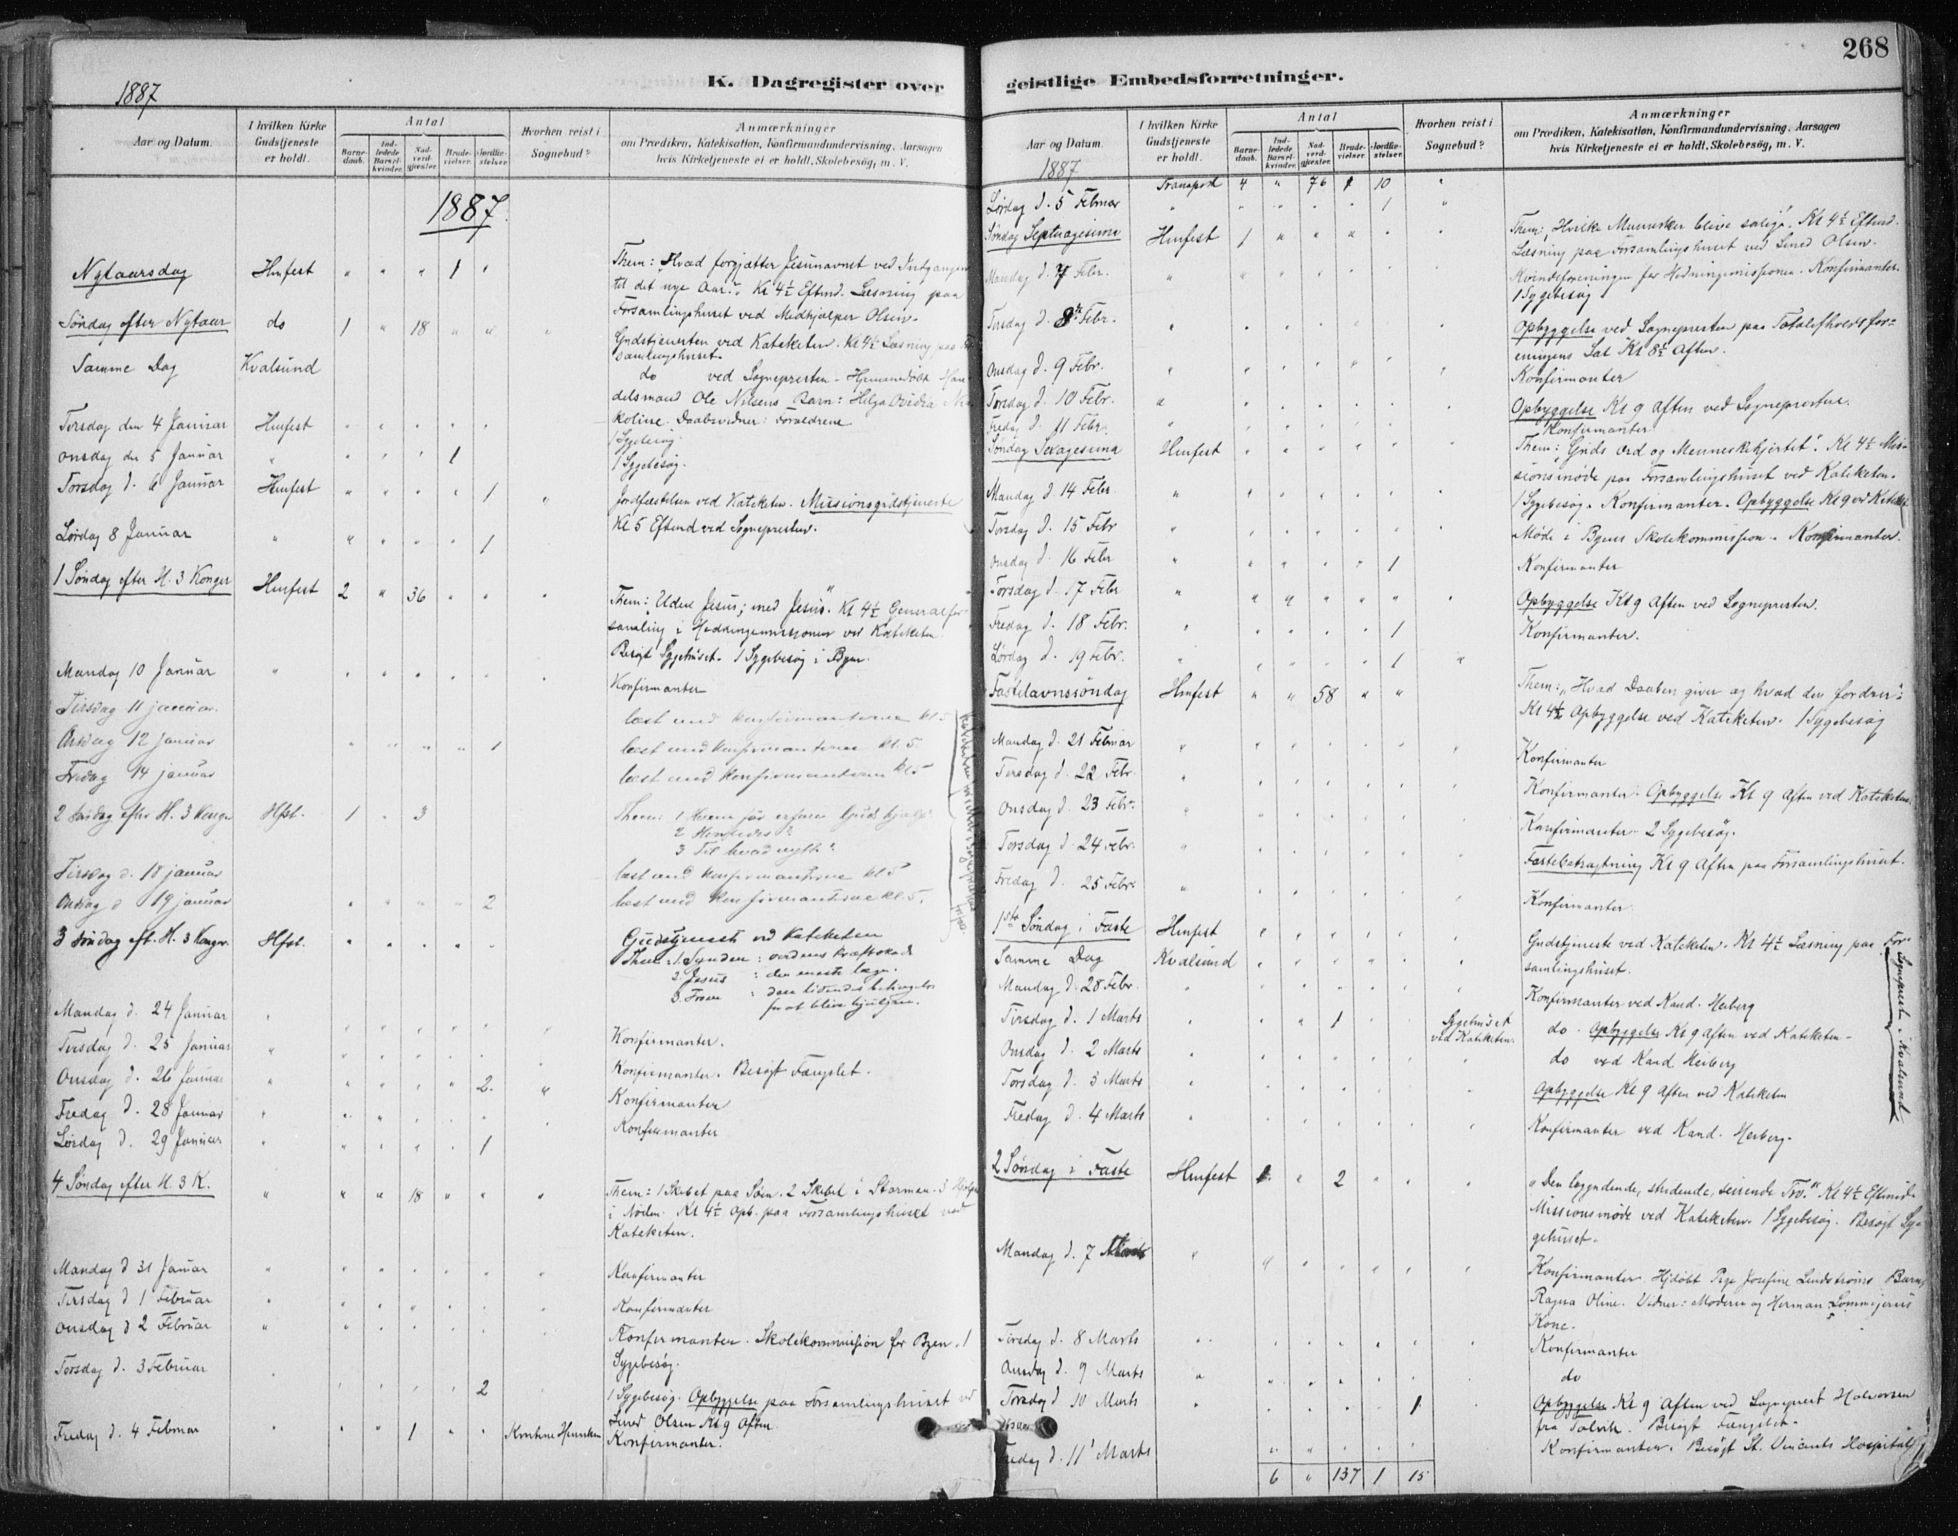 268
K. Dagregister over geistlige Embedsforretninger.
1887
Aar og Datum.
I hvilken Kirke Gudstjeneste er holdt.
Antal
Barne-daab.
Ind-ledede Barsel-kvinder.
Nad-verd-gjester.
Brude-vielser.
Jordfæ-stelser.
Hvorhen reist i Sognebud?
Anmærkninger
om Prædiken, Katekisation, Konfirmandundervisning, Aarsagen
hvis Kirketjeneste ei er holdt, Skolebesøg, m. V.
1887.
Nytaarsdag Hmfest " " " 1 " Them: "Hvad forgjætter Jesunavnet ved Indgangen
til det nye Aar". Kl 4½ Eftmd. Læsning paa
Forsamlingshuset ved Medhjælper Olsen.
Søndag efter Nytaar do 1 " 18 " " " Gudstjenesten ved Kateketen. Kl 4½ Læsning paa For-
samlingshuset.
Samme Dag Kvalsund do ved Sognepresten - Hjemmedøbt Han-
delsmand Ole Nilsens Barn: Helga Ovidia
koline. Daabsvidner: Forældrene
Tirsdag den 4 Januar Hmfest 1 Sygebesøg.
Onsdag den 5 Januar " 1 1 Sygebesøg.
Torsdag d. 6 Januar Hmfest " " " " 1 " Jordfæstelsen ved Kateketen. Missionsgudstjeneste
Kl 5 Eftmd ved Sognepresten.
Lørdag 8 Januar " " " " " 1
1 Søndag efter H. 3 Konger Hmfest 2 " 36 " " " Them: Uden Jesus; med Jesus". Kl 4½ Generalfor-
samling i Hedningemissionen ved Kateketen
Besøgt Sygehuset. 1 Sygebesøg i Byen.
Mandag 10 Januar Konfirmanter
Tirsdag 11 januar. læst med konfirmanterne kl 5
Onsdag 12 Januar 1 læst med konfirmanterne kl. 5.
Fredag 14 januar læst med konfirmanterne kl 5
2 Søndag efter H. 3 Konger Hfst. 1 " 3 Them: 1 Hvem får erfare Guds hjælp?
2 Hvorledes?
3 Til hvad nytte?
Tirsdag d. 18 januar læst med konfirmanterne kl 5
Onsdag d 19 januar 2 læst med konfirmanterne kl 5.
3 Søndag eft. H. 3 Konger. Hfst. Gudstjeneste ved Kateketen
Them: 1. Synden : verdens kræftskade
2. Jesus : den eneste læge.
3. Troen : den lidendes betingelse
for at blive hjulpen.
Mandag d. 24 Januar Konfirmanter.
Tirsdag d. 25 Januar Konfirmanter. Besøgt Fængslet.
Onsdag d. 26 Januar 2. Konfirmanter
Fredag d. 28 Januar Konfirmanter
Lørdag d. 29 Januar 1
4 Søndag efter H. 3 K. " " " 18 " " " Them: 1 Skibet paa Søen. 2 Skibet i Stormen. 3 Hjælpen
i Nøden. Kl 4½ Opb. paa Forsamlingshuset ved
Kateketen.
Mandag d 31 Januar Konfirmanter
Tirsdag d 1 Februar Konfirmanter
Onsdag d 2 Februar Konfirmanter. Skolekommission for Byen. 1
Sygebesøg.
Torsdag d. 3 Februar 2 1 Sygebesøg. Opbyggelse paa Forsamlingshuset ved
Smed Olsen Kl 9 Aften.
Fredag d. 4 Februar " " 1 " " Konfirmanter.
Aar og Datum.
1887
I hvilken Kirke Gudstjeneste er holdt.
Antal
Barne-daab.
Ind-ledede Barsel-kvinder.
Nad-verd-gjester.
Brude-vielser.
Jordfæ-stelser.
Hvorhen reist i Sognebud?
Anmærkninger
om Prædiken, Katekisation, Konfirmandundervisning, Aarsagen
hvis Kirketjeneste ei er holdt, Skolebesøg, m. V.
Transport 4 " 76 1 10 "
Lørdag d. 5 Februar " " " " " 1 "
Søndag Septuagesima Hmfest 1 " " " " " Them: "Hvilke Mennesker blive salige". Kl 4½ Eftmd.
Læsning paa Forsamlingshuset ved Smed Olsen.
Mandag d. 7 Febr. " Kvindeforeningen for Hedningemissionen. Konfirmanter.
1 Sygebesøg
Tirsdag d. 8de Febr. Opbyggelse ved Sognepresten paa Totalafholdsfor-
eningens Sal Kl 8½ Aften.
Onsdag d. 9 Febr. Konfirmanter
Torsdag d. 10 Febr. Opbyggelse Kl 9 Aften ved Sognepresten.
Fredag d. 11 Febr. Konfirmanter
Søndag Sexagesima Hmfest Them: "Guds Ord og Menneskehjertet". Kl 4½ Mis-
sionsmøde paa Forsamlingshuset ved Kateketen.
Mandag d. 14 Febr. 1 Sygebesøg. Konfirmanter. Opbyggelse Kl 9 ved Kateket.
Tirsdag d. 15 Febr Møde i Byens Skolekommission. Konfirmanter.
Onsdag d. 16 Febr 1 Konfirmanter
Torsdag d. 17 Febr Opbyggelse Kl 9 Aften ved Sognepresten.
Fredag d. 18 Febr. 1 Konfirmanter.
Lørdag d. 19 Febr. 1
Fastelavnssøndag Hmfest " " 58 " " Them: "Hvad Daaben giver og hvad den fordrer":
Kl 4½ Opbyggelse ved Kateketen. 1 Sygebesøg
Mandag d. 21 Februar Konfirmanter
Tirsdag d. 22 Febr. Konfirmanter Opbyggelse Kl 9 Aften ved Kateketen.
Onsdag d. 23 Febr. Konfirmanter - 2 Sygebesøg.
Torsdag d. 24 Febr. Fastebetragtning Kl 9 Aften paa Forsamlingshuset.
Fredag d. 25 Febr. Konfirmanter.
1ste Søndag i Faste Hmfest Gudstjeneste ved Kateketen. Kl 4½ Læsning paa For-
samlingshuset.
Sognepresten i Kvalsund
Samme Dag Kvalsund
Mandag d. 28 Febr. Konfirmanter ved Kand. Heiberg
Tirsdag d. 1 Marts 1 Sygehuset ved Kateketen. do - Opbyggelse Kl 9 Aften ved Kateketen -
Onsdag d. 2 Marts do ved Kand Heiberg
Torsdag d. 3 Marts Opbyggelse Kl 9 Aften ved Kateketen
Fredag d. 4 Marts Konfirmanter ved Kand. Heiberg.
2 Søndag i Faste Hmfest 1. " 2 " " " "Den begyndende, stridende, seirende Tro." Kl 4½ Eftmd.
Missionsmøde ved Kateketen. 1 Sygebesøg. Besøgt Sy-
gehuset.
Mandag d. 7 Marts Konfirmanter. Hjdøbt Pige Josefine Lindstrøms Barn,
Ragna Oline. Vidner: Moderen og Herman
Kone.
Tirsdag d. 8 Marts Konfirmanter
Onsdag d. 9 Marts do
Torsdag d 10 Marts 1 Opbyggelse Kl 9 Aften ved Sogneprest Halvorsen
fra Talvik. Besøgt Fængslet.
Fredag d. 11 Marts Konfirmanter. Besøgt St. Vincents Hospital
6 " 137 1 15